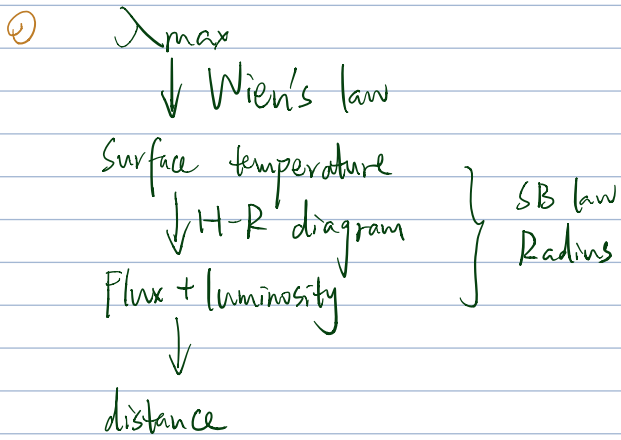 ①
λmax
↓ Wien's law
Surface temperature
↓ H-R diagram
Flux + luminosity
↓
distance
SB law
Radius